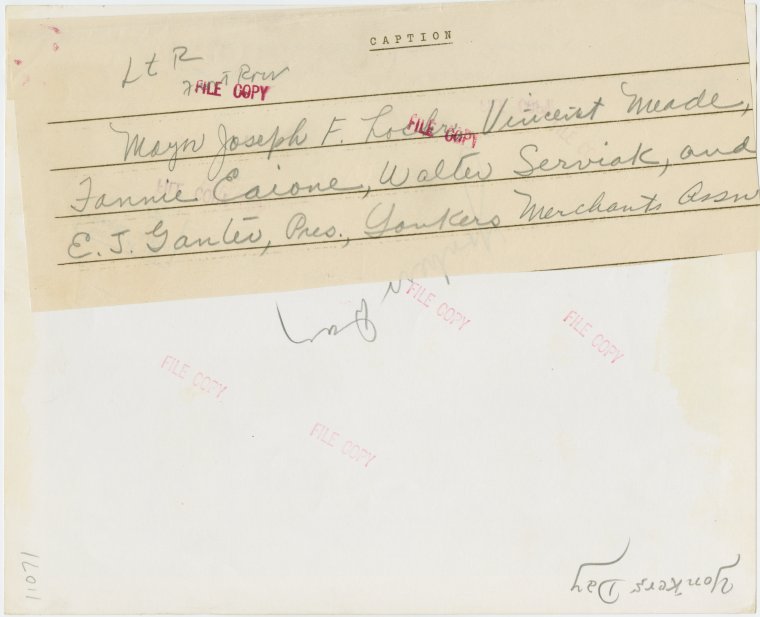 CAPTION
L t R
Front Row
FILE COPY
Mayor Joseph F. FILE COPY Vincent Meade,
Fannie Caione, Walter Serviak, and
E. J. Ganter, Pres., Yonkers Merchants Assn
FILE COPY
FILE COPY
FILE COPY
FILE COPY
Yonkers Day
12011